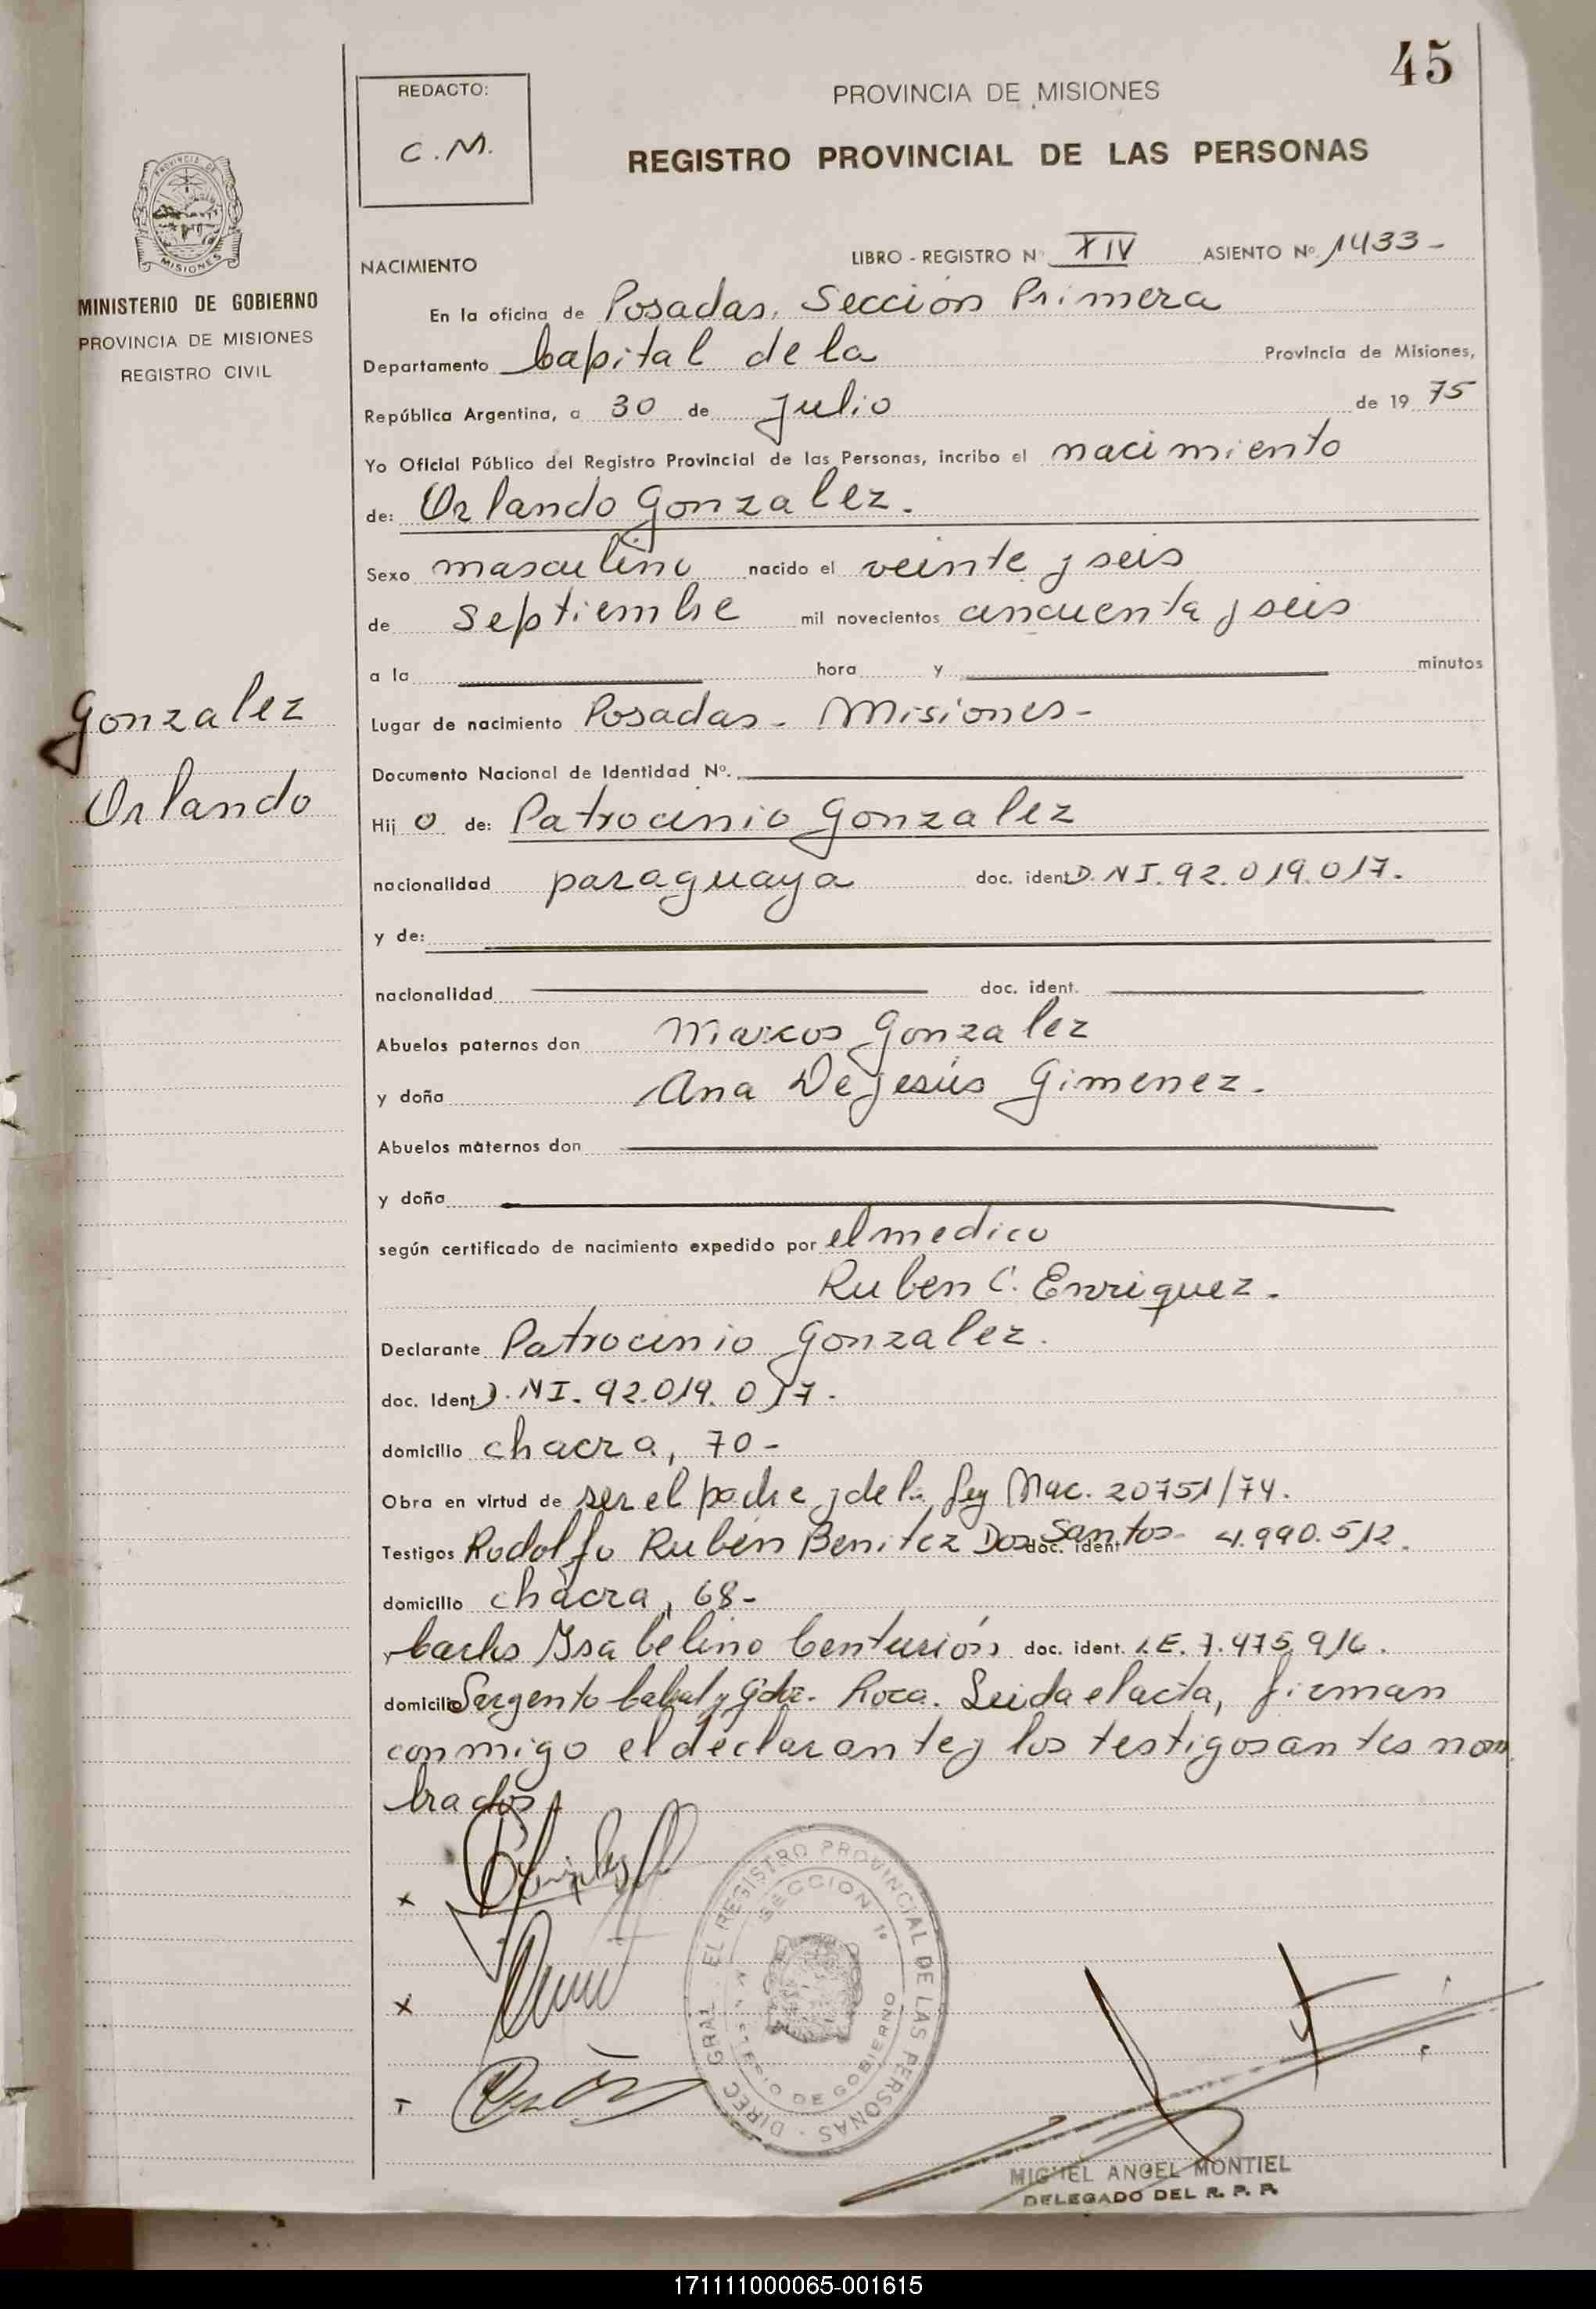 45
REDACTO:
C.M.
PROVINCIA DE MISIONES
REGISTRO PROVINCIAL DE LAS PERSONAS
PROVINCIA DE
MISIONES
MINISTERIO DE GOBIERNO
PROVINCIA DE MISIONES
REGISTRO CIVIL
NACIMIENTO
LIBRO - REGISTRO Nº XIV ASIENTO Nº 1433-
En la oficina de Posadas, Sección Primera
Departamento Capital de la Provincia de Misiones,
República Argentina, a 30 de Julio de 1975
Yo Oficial Público del Registro Provincial de las Personas, incribo el nacimiento
de: Orlando Gonzalez.
Sexo masculino nacido el veinte y seis
de Septiembre mil novecientos cincuenta y seis
a la hora y minutos
Gonzalez
Orlando
Lugar de nacimiento Posadas - Misiones-
Documento Nacional de Identidad Nº.
Hijo de: Patrocinio Gonzalez
nacionalidad paraguaya doc. ident D.NI.92.019.017.
y de:
nacionalidad doc. ident.
Abuelos paternos don Marcos Gonzalez
y doña Ana De Jesús Gimenez.
Abuelos maternos don
y doña
según certificado de nacimiento expedido por el medico
Ruben C. Enriquez.
Declarante Patrocinio Gonzalez.
doc. Ident D.NI. 92.019.017-
domicilio chacra, 70-
Obra en virtud de ser el padre y de la Ley Nac. 20751/74.
Testigos Rodolfo Rubén Benitez Dos Santos doc. ident 4.990.512.
domicilio chacra, 68-
y Carlos Isabelino Centurión doc. ident. L.E. 7.475.916.
domicilio Sargento Cabral y Gdor. Roca. Leida el acta, firman
conmigo el declarante y los testigos antes nom
brados.
DIREC GRAL EL REGISTRO PROVINCIAL DE LAS PERSONAS
SECCION 1ª
MINISTERIO DE GOBIERNO
MIGUEL ANGEL MONTIEL
DELEGADO DEL R. P. P.
171111000065-001615